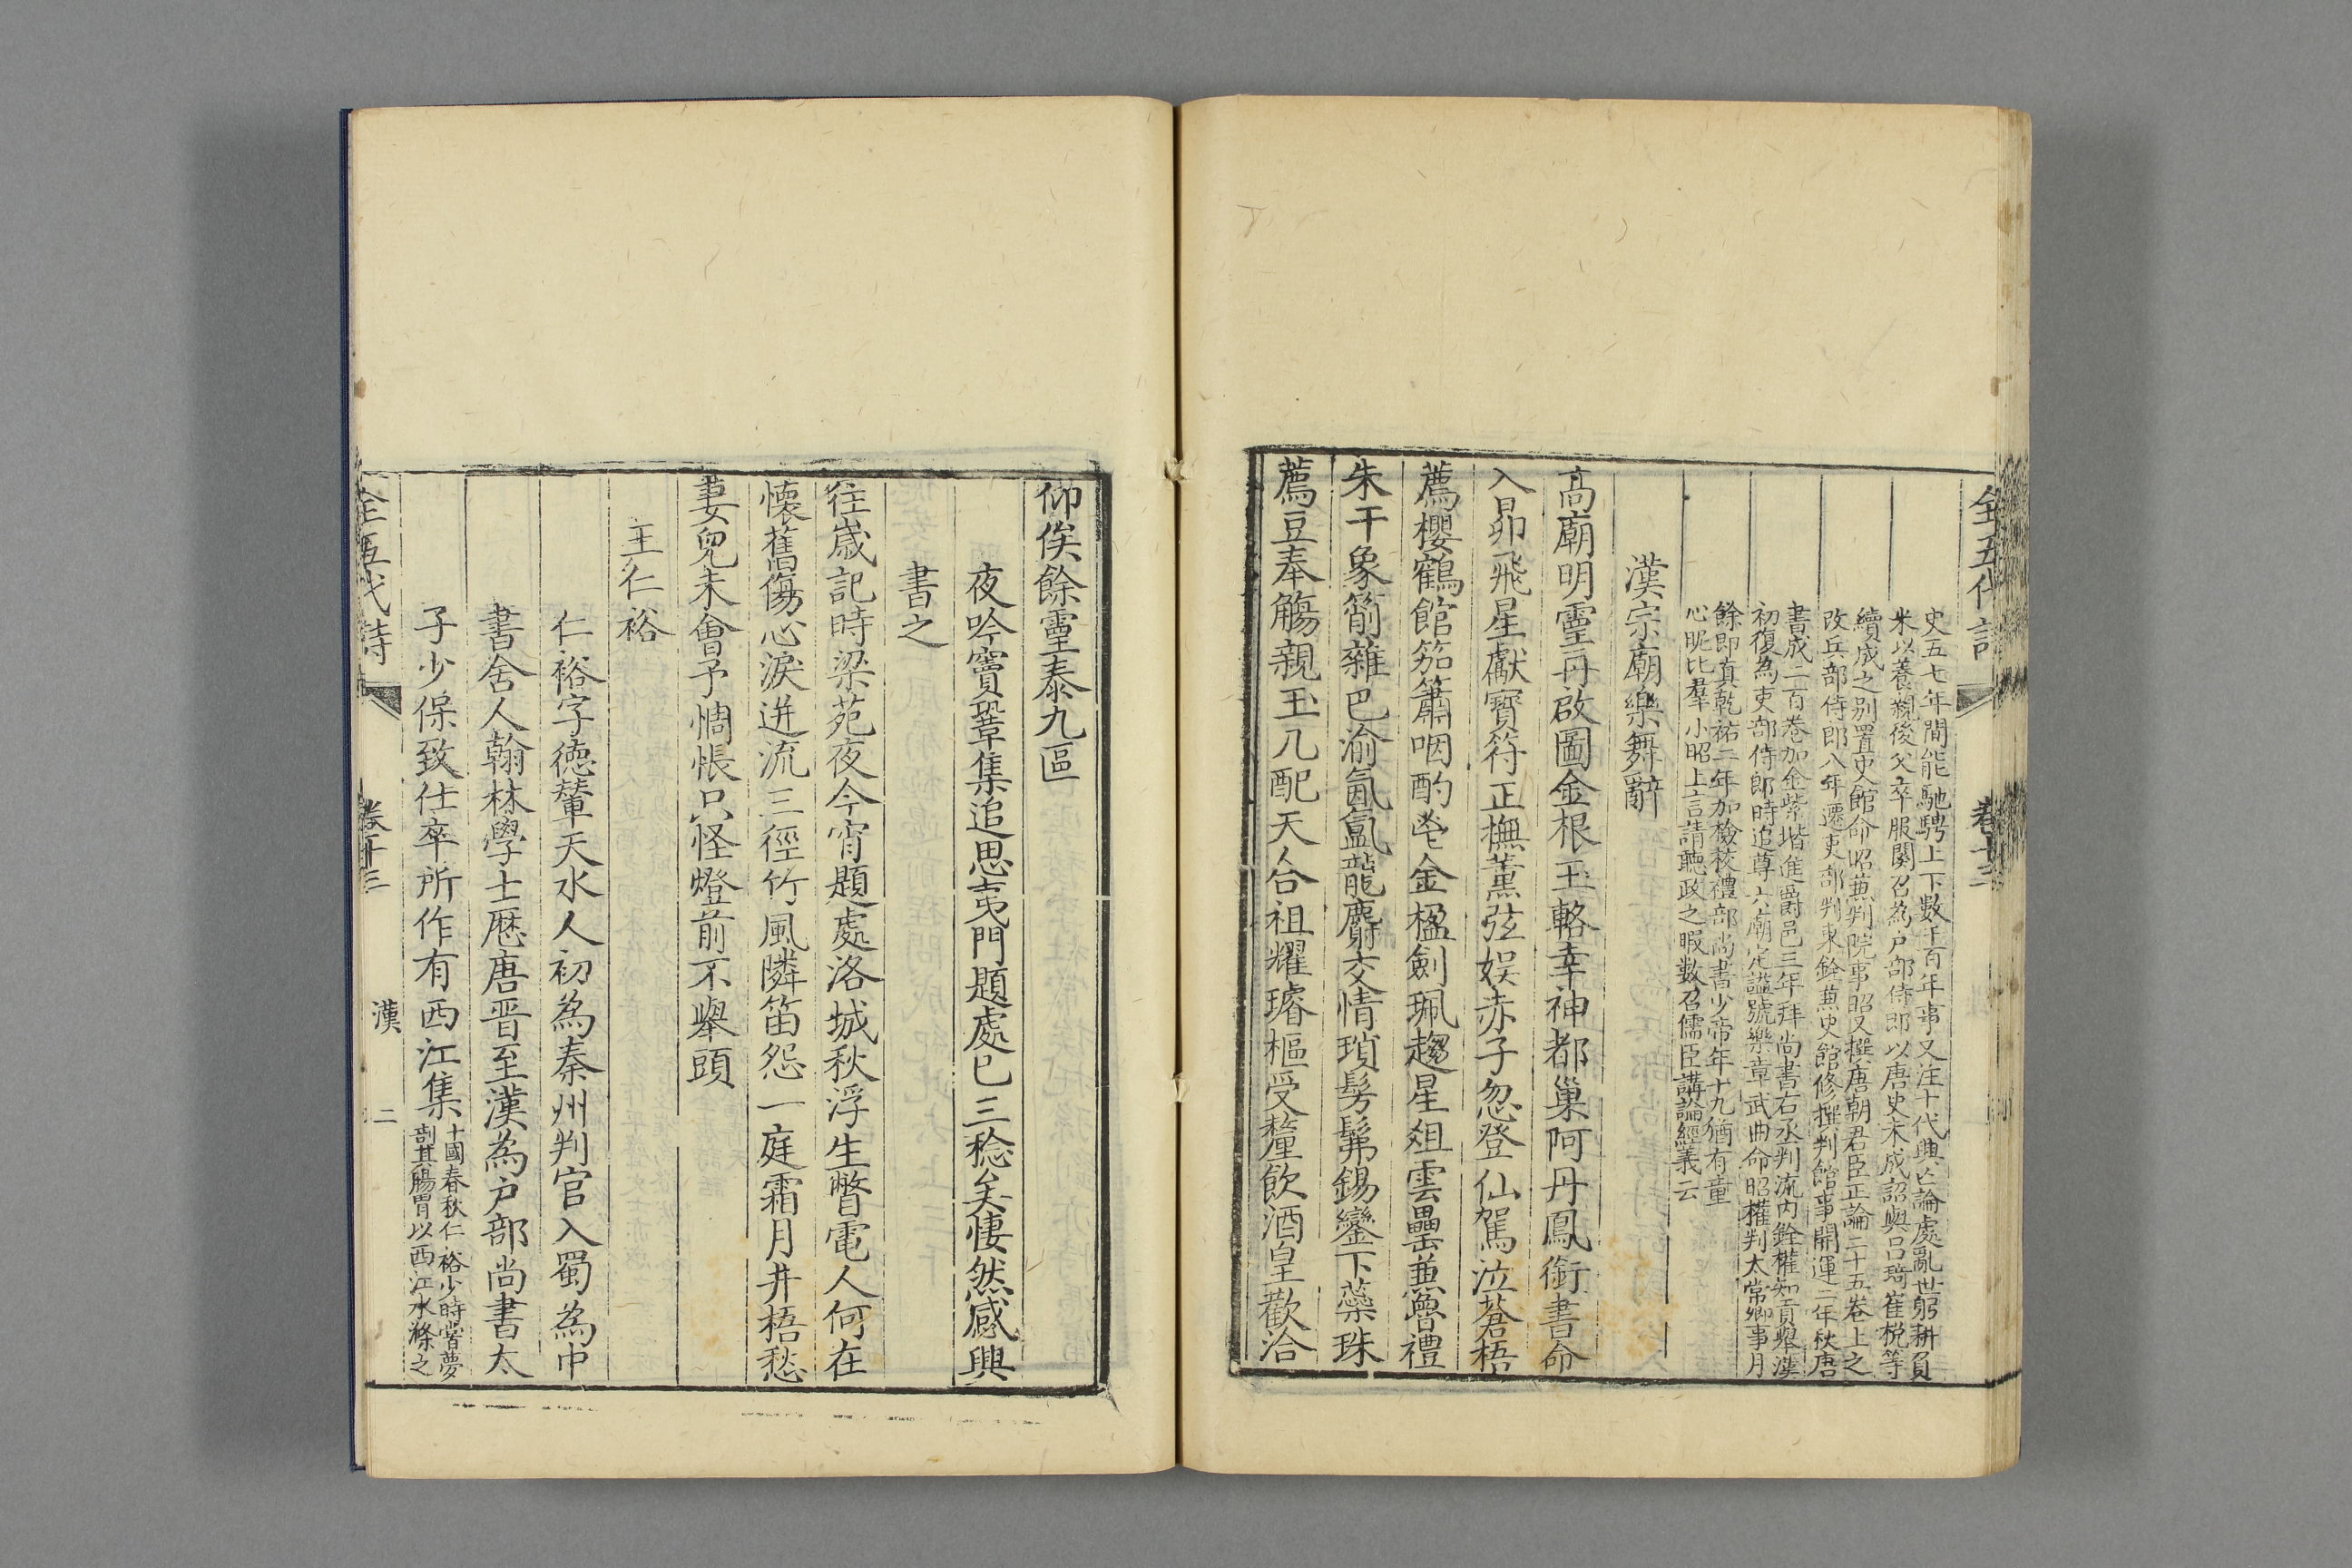 全五代詩 卷十三
史五七年間能馳騁上下數千百年事又注十代興亡論處亂世躬耕負
米以養親後父卒服闋召為戶部侍郎以唐史未成詔與呂琦崔梲等
續成之別置史館命昭兼判院事昭又撰唐朝君臣正論二十五卷上之
改兵部侍郎八年遷吏部判東銓兼史館修撰判館事開運二年秋唐
書成二百卷加金紫堦進爵邑三年拜尚書右丞判流內銓權知貢舉漢
初復為吏部侍郎時追尊六廟定謚號樂章武曲命昭權判太常卿事月
餘即真乾祐二年加檢校禮部尚書少帝年十九猶有童
心昵比羣小昭上言請聽政之暇數召儒臣講論經義云
漢宗廟樂舞辭
高廟明靈再啟圖金根玉輅幸神都巢阿丹鳳銜書命
入昴飛星獻寶符正撫薰弦娛赤子忽登仙駕泣蒼梧
薦櫻鶴館笳簫咽酌鬯金楹劍珮趨星俎雲罍兼魯禮
朱干象箾雜巴渝氤氳龍麝交情瑣髣髴錫鑾下蘂珠
薦豆奉觴親玉几配天合祖耀璿樞受釐飲酒皇歡洽
仰俟餘靈泰九區
夜吟竇鞏集追思夷門題處已三稔矣悽然感興
書之
往歲記時梁苑夜今宵題處洛城秋浮生瞥電人何在
懷舊傷心淚迸流三徑竹風隣笛怨一庭霜月井梧愁
妻兒未會予惆悵只怪燈前不舉頭
王仁裕
仁裕字德輦天水人初為秦州判官入蜀為中
書舍人翰林學士歷唐晋至漢為戶部尚書太
子少保致仕卒所作有西江集十國春秋仁裕少時嘗夢
剖其腸胃以西江水滌之
全五代詩 卷十三 漢 二